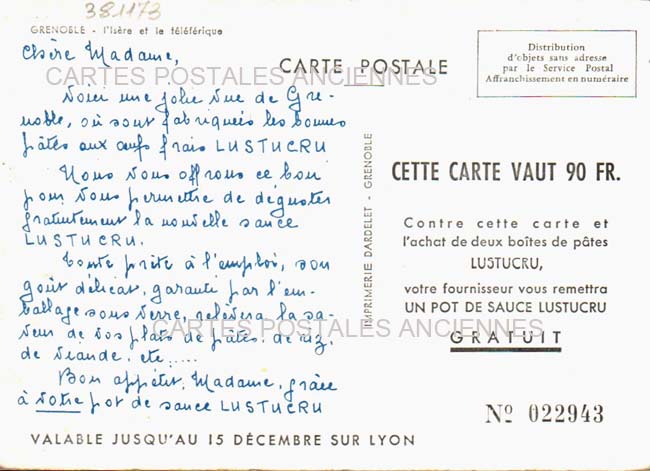 381173
GRENOBLE - l'Isère et le téléférique
Chère Madame,
CARTE POSTALE
Distribution
d'objets sans adresse
par le Service Postal
Affranchissement en numéraire
CARTES POSTALES ANCIENNES
Voici une jolie vue de Gre-
noble, où sont fabriquées les bonnes
pâtes aux œufs frais LUSTUCRU
Nous vous offrons ce bon
pour vous permettre de déguster
gratuitement la nouvelle sauce
LUSTUCRU.
Toute prête à l'emploi, son
goût délicat, garanti par l'em-
ballage sous verre, relèvera la sa-
veur de vos plats de pâtes, de riz,
CARTES POSTALES ANCIENNES
de viande, etc.....
Bon appétit, Madame, grâce
à votre pot de sauce LUSTUCRU
IMPRIMERIE DARDELET - GRENOBLE
CETTE CARTE VAUT 90 FR.
Contre cette carte et
l'achat de deux boîtes de pâtes
LUSTUCRU,
votre fournisseur vous remettra
UN POT DE SAUCE LUSTUCRU
GRATUIT
Nº 022943
VALABLE JUSQU'AU 15 DÉCEMBRE SUR LYON